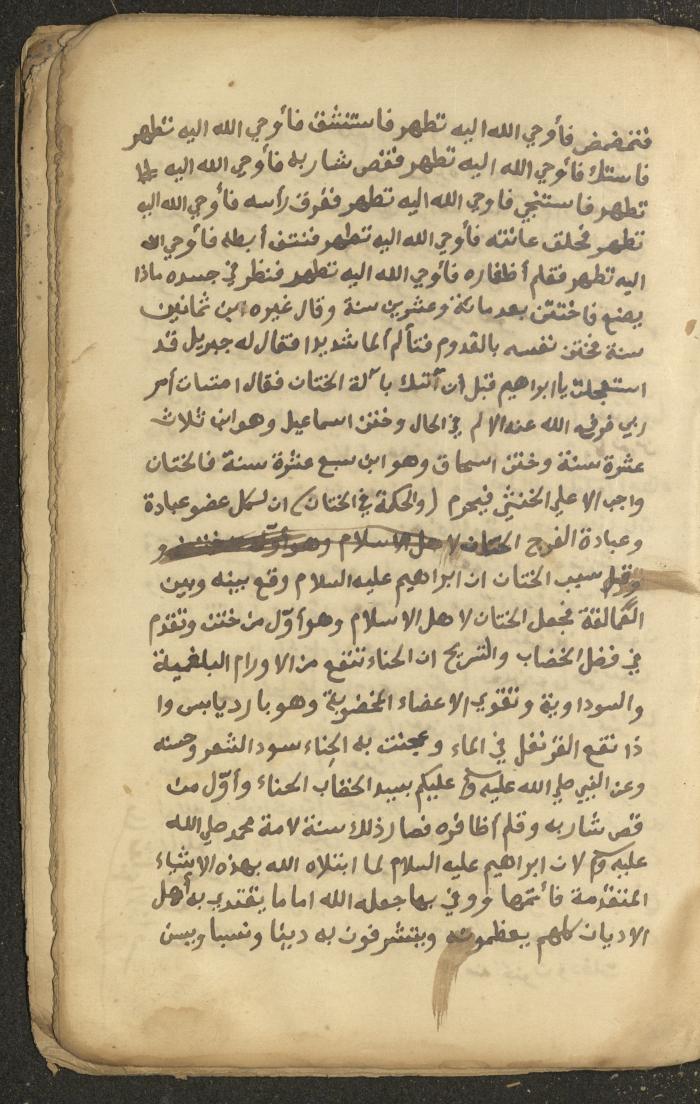 فتمضمض فأوحي الله اليه تطهر فاستنشق فأوحي الله اليه تطهر
فاستك فأوحي الله اليه تطهر فقص شاربه فأوحي الله اليه
تطهر فاستنجي فاوحي الله اليه تطهر ففرق رأسه فأوحي الله اليه
تطهر فحلق عانته فأوحي الله اليه تطهر فنتف أبطه فأوحي الله
اليه تطهر فقلم أظفاره فأوحي الله اليه تطهر فنظر في جسده ماذا
يصنع فاختتن بعد مائة وعشرين سنة وقال غيره ابن ثمانين
سنة فختن نفسه بالقدوم فتألم ألما شديدا فقال له جبريل قد
استعجلت يا ابراهيم قبل أن آتيك بآلة الختان فقال امتثلت أمر
ربي فرفع الله عنه الالم في الحال وختن اسماعيل وهو ابن ثلاث
عشرة سنة وختن اسحاق وهو ابن سبع عشرة سنة فالختان
واجب الا علي الخنثي فيحرم (والحكمة في الختان) ان لكل عضو عبادة
وعبادة الفرج الختان لاهل الاسلام وهو أول من ختن و
وقيل سبب الختان ان ابراهيم عليه السلام وقع بينه وبين
العمالقة فجعل الختان لاهل الاسلام وهو أول من ختن وتقدم
في فضل الخضاب والتسريح ان الحناء تنفع من الاورام البلغمية
والسوداوية وتقوي الاعضاء المخضوبة وهو بارد يابس وا
ذا نقع القرنفل في الماء وعجنت به الحناء سود الشعر وحسنه
وعن النبي صلي الله عليه وسلم عليكم بسيد الخضاب الحناء وأول من
قص شاربه وقلم أظافره فصار ذلك سنة لامة محمد صلي الله
عليه وسلم لان ابراهيم عليه السلام لما ابتلاه الله بهذه الاشياء
المتقدمة فأتمها ووفي بها جعله الله اماما يقتدي به أهل
الاديان كلهم يعظمونه ويتشرفون به دينا ونسبا وبين